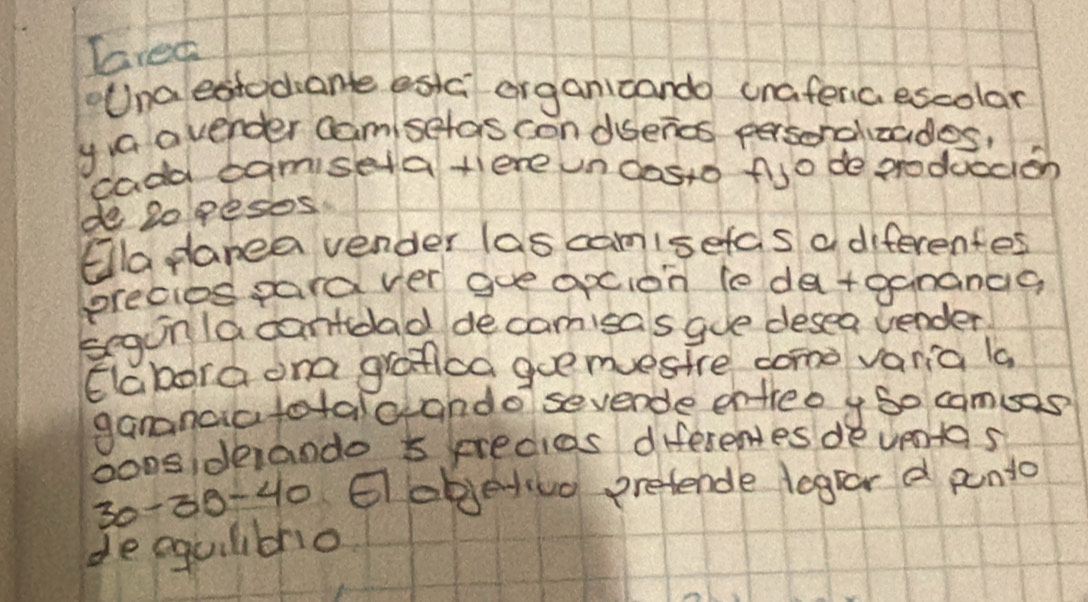 Tarea
Una estudiante está organizando una feria escolar
y va a vender camisetas con diseños personalizados,
cada camiseta tiene un costo fijo de producción
de 20 pesos.
Ella planea vender las camisetas a diferentes
precios para ver que opción le da + ganancia,
según la cantidad de camisas que desea vender.
Elabora una gráfica que muestre como varía la
ganancia total cuando se vende entre 0 y 50 camisas
considerando 3 precios diferentes de ventas
30-35-40. El objetivo pretende lograr el punto
de equilibrio